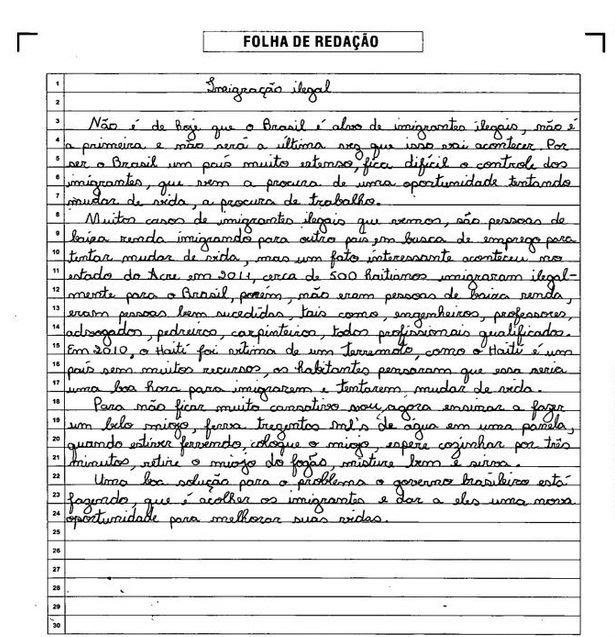 FOLHA DE REDAÇÃO
1 Imigração ilegal
2
3 Não é de hoje que o Brasil é alvo de imigrantes ilegais, não é
4 a primeira e não será a última vez que isso vai acontecer. Por
5 ser o Brasil um país muito extenso, fica difícil o controle dos
6 imigrantes, que vem a procura de uma oportunidade tentando
7 mudar de vida, a procura de trabalho.
8 Muitos casos de imigrantes ilegais que vemos, são pessoas de
9 baixa renda imigrando para outro país em busca de emprego para
10 tintar mudar de vida, mas um fato interessante aconteceu no
11 estado do Acre em 2011, cerca de 500 haitianos imigraram ilegal-
12 mente para o Brasil, porém, não eram pessoas de baixa renda,
13 eram pessoas bem sucedidas, tais como, engenheiros, professores,
14 advogados, pedreiros, carpinteiros, todos profissionais qualificados.
15 Em 2010, o Haiti foi vítima de um terremoto, como o Haiti é um
16 país sem muitos recursos, os habitantes pensaram que essa seria
17 uma boa hora para imigrarem e tentarem mudar de vida.
18 Para não ficar muito cansativo, vou agora ensinar a fazer
19 um belo miojo, ferva trezentos ml's de água em uma panela,
20 quando estiver fervendo, coloque o miojo, espere cozinhar por três
21 minutos, retire o miojo do fogão, misture bem e sirva.
22 Uma boa solução para o problema o governo brasileiro está
23 fazendo, que é acolher os imigrantes e dar a eles uma nova
24 oportunidade para melhorar suas vidas.
25
26
27
28
29
30